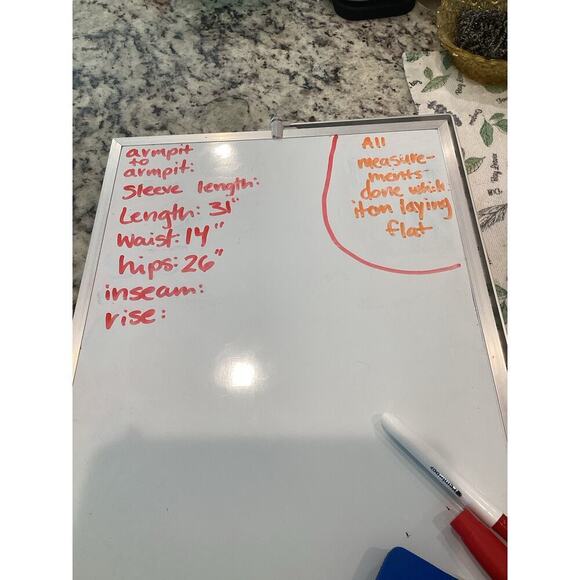 armpit
to
armpit:
Sleeve length:
Length: 31"
Waist: 14"
hips: 26"
inseam:
rise:
All
measure-
ments
done which
item laying
flat
Bay Leaves